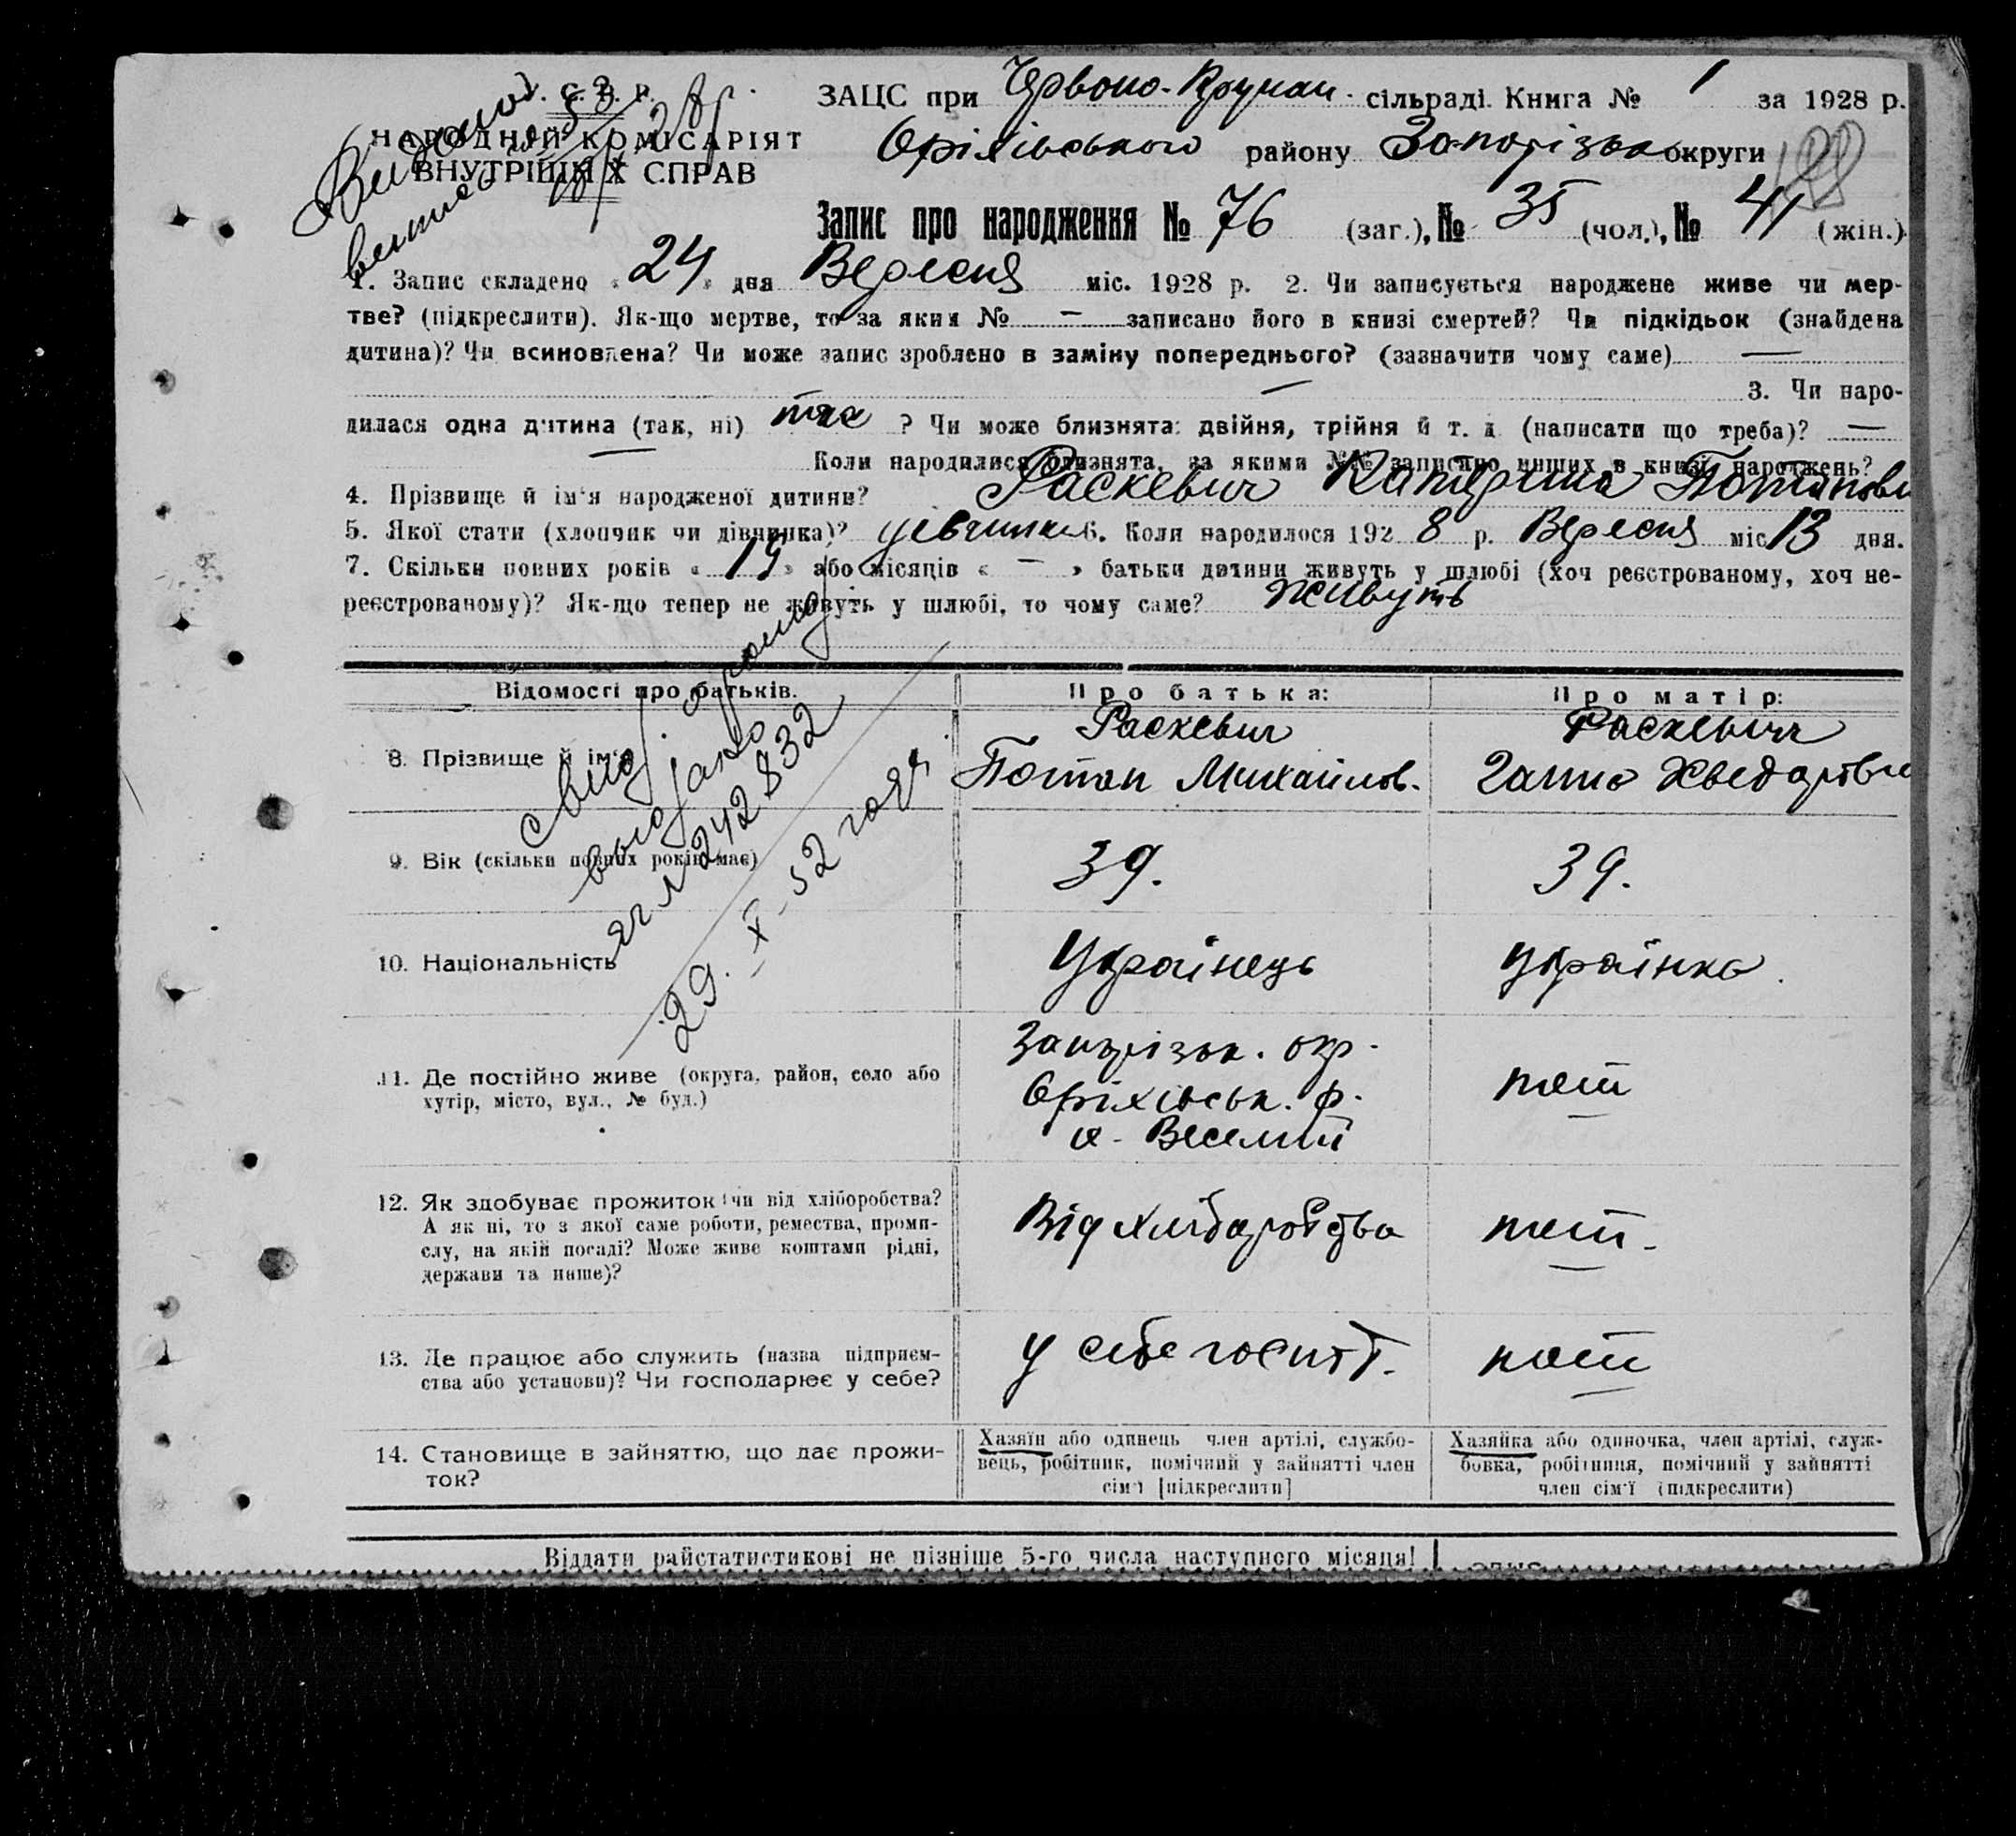 У. С. Р. Р.
НАРОДНИЙ КОМІСАРІЯТ
ВНУТРІШНІХ СПРАВ
ЗАЦС при Червоно-Крупак. сільраді. Книга № 1 за 1928 р.
Оріхівського району Запорізької округи
188
Запис про народження № 76 (заг.), № 35 (чол.), № 41 (жін.)
1. Запис складено «24» дня Вересня міс. 1928 р. 2. Чи записується народжене живе чи мер-
тве? (підкреслити). Як-що мертве, то за яким № — записано його в книзі смертей? Чи підкідьок (знайдена
дитина)? Чи всиновлена? Чи може запис зроблено в заміну попереднього? (зазначити чому саме) —
— 3. Чи наро-
дилася одна дитина (так, ні) так ? Чи може близнята: двійня, трійня й т. д. (написати що треба)? —
— Коли народилися близнята, за якими №№ записано инших в книзі народжень?
4. Прізвище й ім'я народженої дитини? Раскевич Катерина Потаповн
5. Якої стати (хлопчик чи дівчинка)? дівчинка 6. Коли народилося 1928 р. Вересня міс 13 дня.
7. Скільки повних років «19» або місяців « — » батьки дитини живуть у шлюбі (хоч реєстрованому, хоч не-
реєстрованому)? Як-що тепер не живуть у шлюбі, то чому саме? Живуть
Відомості про батьків. Про батька: Про матір:
8. Прізвище й ім'я Раскевич Потап Михайлов. Раскевич Ганна Хведоровна
9. Вік (скільки повних років має) 39. 39.
10. Національність Українець Українка.
11. Де постійно живе (округа, район, село або
хутір, місто, вул., № буд.)
Запорізьк. окр.
Оріхівськ. р.
х. Веселий
тош
12. Як здобуває прожиток (чи від хліборобства?
А як ні, то з якої саме роботи, ремества, проми-
слу, на якій посаді? Може живе коштами рідні,
держави та инше)?
Від хліборобства
тош.
13. Де працює або служить (назва підприєм-
ства або установи)? Чи господарює у себе?
у себе
тош
14. Становище в зайняттю, що дає прожи-
ток?
Хазяїн або одинець член артілі, службо-
вець, робітник, помічний у зайнятті член
сім'ї [підкреслити]
Хазяйка або одиночка, член артілі, служ-
бовка, робітниця, помічний у зайнятті
член сім'ї (підкреслити)
Віддати райстатистикові не пізніше 5-го числа наступного місяця!
Видано
свид.
выдано
ЯЧ № 242832
29. X - 52 года